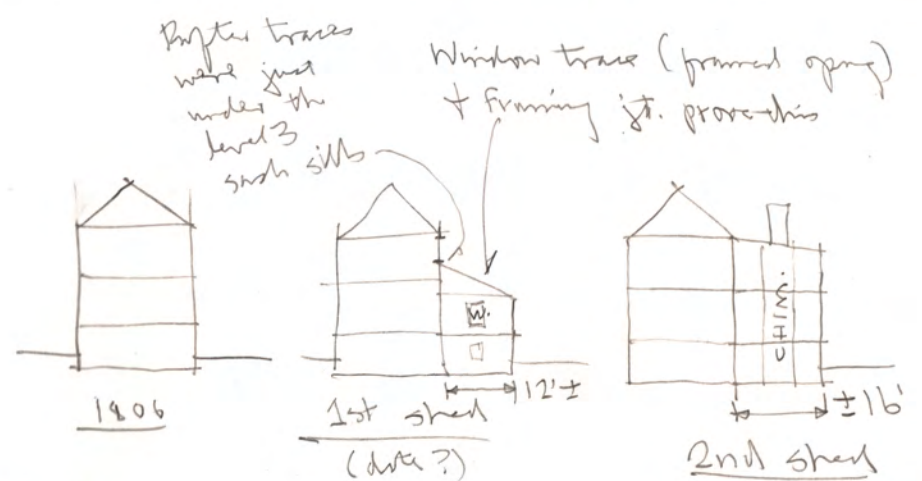 Rafter traces
were just
under the
level 3
sash sills
Window trace (framed openg)
+ framing jt. prove this
W.
CHIM.
1806
1st shed
(date?)
12'±
±16'
2nd shed